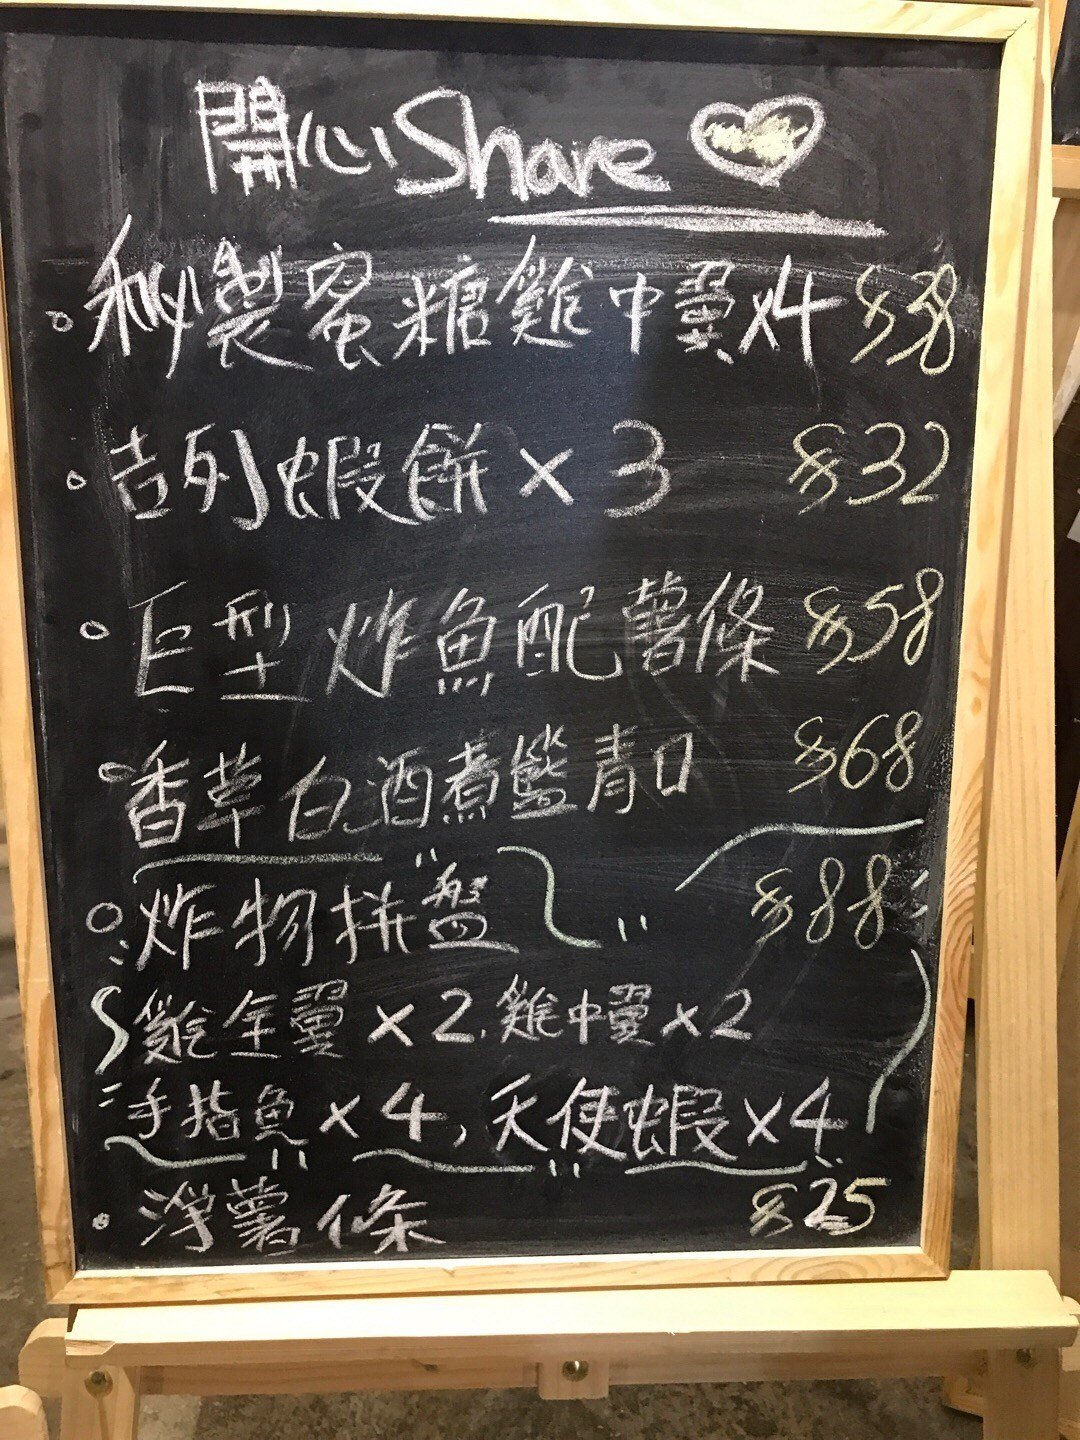 開心Share
秘製蜜糖雞中翼x4 $38
吉列蝦餅 x 3 $32
巨型炸魚配薯條 $58
香草白酒煮籃青口 $68
炸物拼盤 $88
雞全翼 x 2. 雞中翼 x 2
手指魚 x 4, 天使蝦 x 4
淨薯條 $25